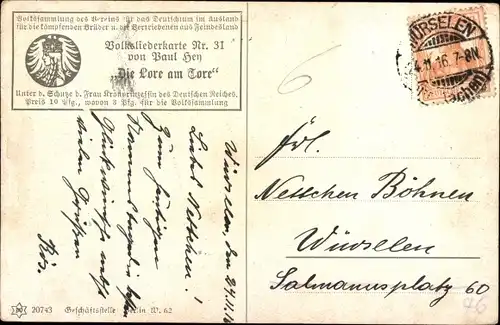 Volkssammlung des Vereins für das Deutschtum im Ausland
für die kämpfenden Brüder u. die Vertriebenen aus Feindesland
Volksliederkarte Nr. 31
von Paul Hey
"Die Lore am Tore"
Unter d. Schutze d. Frau Kronprinzessin des Deutschen Reiches.
Preis 10 Pfg., wovon 3 Pfg. für die Volkssammlung
WÜRSELEN
4.11.16. 7-8N
(AACHEN)
6
Würselen, den 24.11.16
Liebes Nettchen!
Zum heutigen
Namenstage die besten
Glückwünsche nebst
vielen Grüßen
Frl.
Nettchen Böhnen
Würselen
Salmanusplatz 60
46
20743 Geschäftsstelle Berlin W. 62